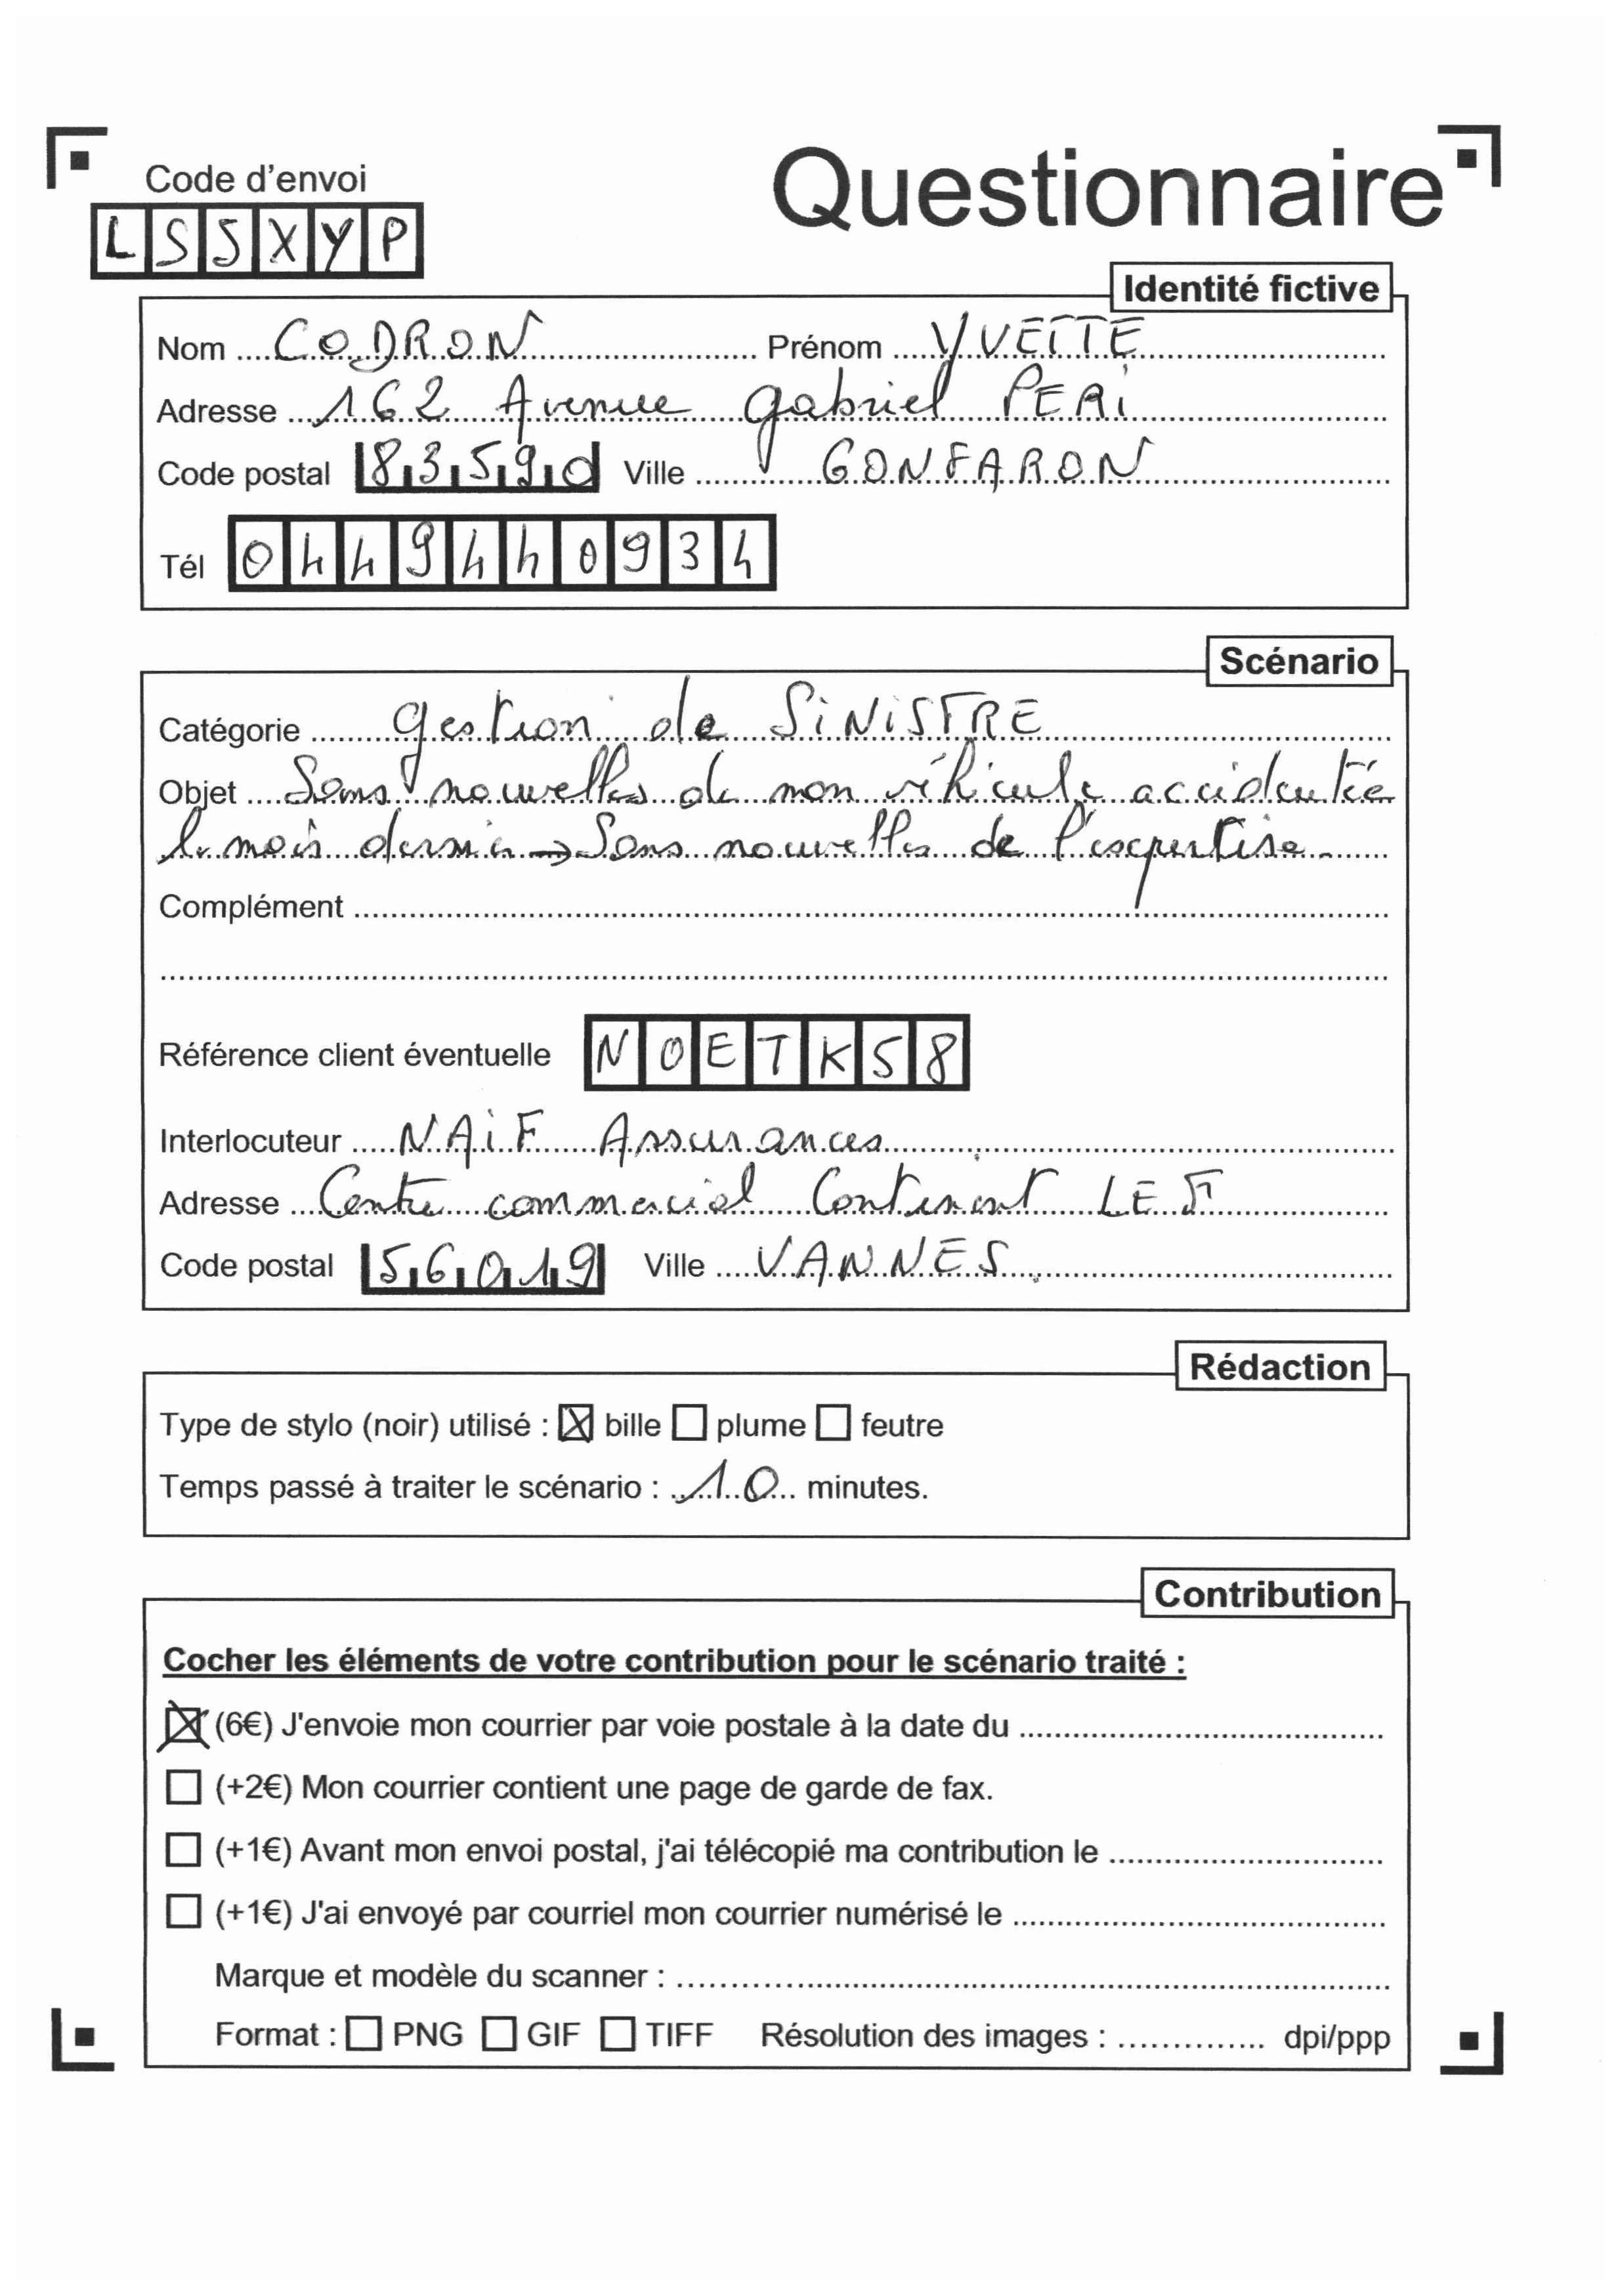 Code d'envoi
Questionnaire
LSSXYP
Identité fictive
Nom CODRON Prénom YVETTE
Adresse 162 Avenue gabriel PERi
Code postal 83590 Ville GONFARON
Tél 0449440934
Scénario
Catégorie gestion de SiNiSTRE
Objet Sans nouvelles de mon véhicule accidentée
le mois dernier → Sans nouvelles de l'expertise.
Complément
Référence client éventuelle NOETK58
Interlocuteur NAiF Assurances
Adresse Centre commercial Continent LE F
Code postal 56019 Ville VANNES
Rédaction
Type de stylo (noir) utilisé : ☒ bille ☐ plume ☐ feutre
Temps passé à traiter le scénario : 10 minutes.
Contribution
Cocher les éléments de votre contribution pour le scénario traité :
☒ (6€) J'envoie mon courrier par voie postale à la date du
☐ (+2€) Mon courrier contient une page de garde de fax.
☐ (+1€) Avant mon envoi postal, j'ai télécopié ma contribution le
☐ (+1€) J'ai envoyé par courriel mon courrier numérisé le
Marque et modèle du scanner :
Format : ☐ PNG ☐ GIF ☐ TIFF Résolution des images : dpi/ppp